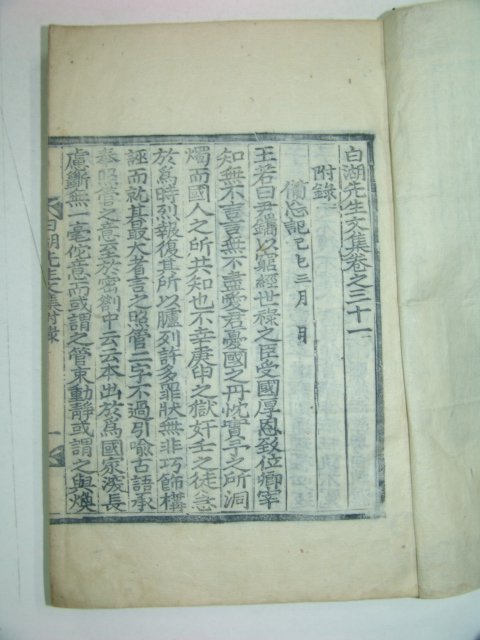 白湖先生文集卷之三十一
附錄
備忘記己巳三月 日
王若曰尹鑴以窮經世祿之臣受國厚恩致位卿宰
知無不言言無不盡愛君憂國之丹忱實予之所洞
燭而國人之所共知也不幸庚申之獄奸壬之徒急
於爲時烈報復其所以臚列許多罪狀無非巧飾構
誣而就其最大者言之照管二字不過引喩古語承
奉慈管之意至於密劄中云云本出於爲國家深長
慮斷無一毫佗意而或謂之管束動靜或謂之與煐
白湖先生文集附錄 一